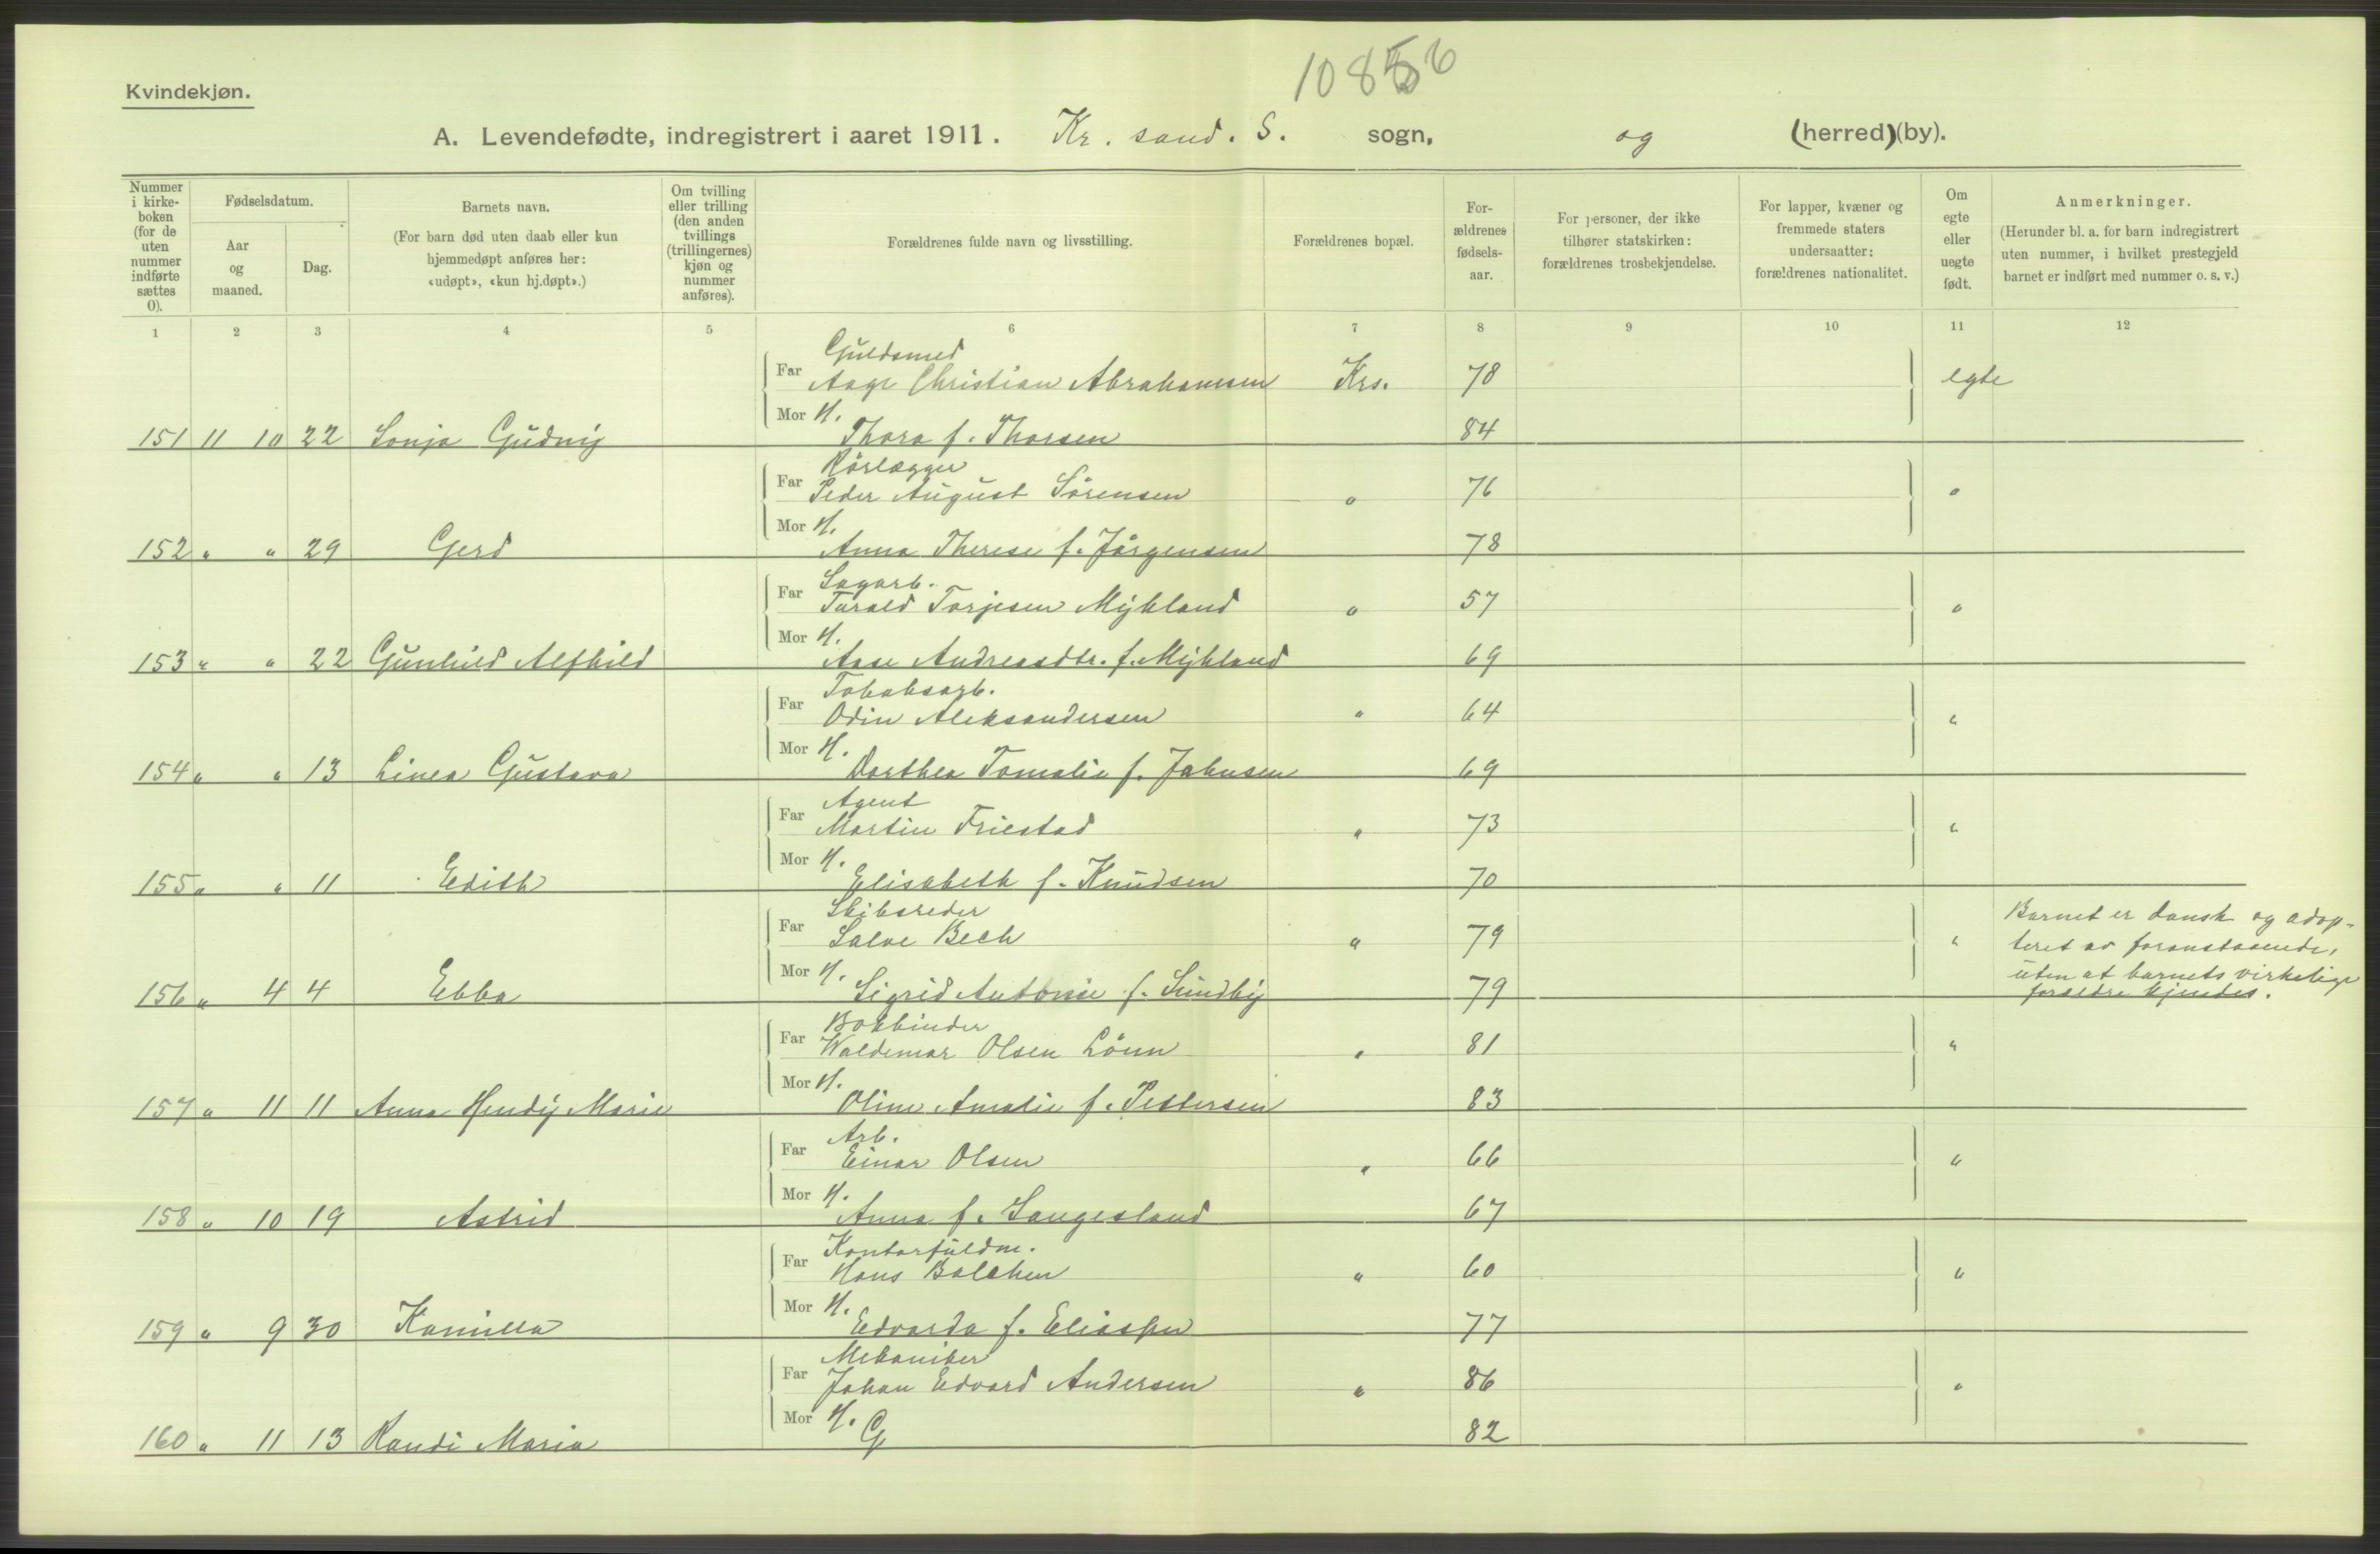 10856
Kvindekjøn.
A. Levendefødte, indregistrert i aaret 1911. Kr. sand. S. sogn, og (herred)(by).
Nummer i kirke-boken (for de uten nummer indførte sættes 0).
Fødselsdatum.
Aar og maaned.
Dag.
Barnets navn.
(For barn død uten daab eller kun hjemmedøpt anføres her: «udøpt», «kun hj.døpt».)
Om tvilling eller trilling (den anden tvillings (trillingernes) kjøn og nummer anføres).
Forældrenes fulde navn og livsstilling.
Forældrenes bopæl.
For-ældrenes fødsels-aar.
For personer, der ikke tilhører statskirken: forældrenes trosbekjendelse.
For lapper, kvæner og fremmede staters undersaatter: forældrenes nationalitet.
Om egte eller uegte født.
Anmerkninger.
(Herunder bl. a. for barn indregistrert uten nummer, i hvilket prestegjeld barnet er indført med nummer o. s. v.)
1 2 3 4 5 6 7 8 9 10 11 12
Guldsmed
Far Aage Christian Abrahamsen Krs. 78 egte
Mor H.
151 11 10 22 Sonja Gudny Thora f. Thorsen 84
Rørlægger
Far Peder August Sørensen " 76 "
Mor H.
152 " " 29 Gerd Anna Therese f. Jørgensen 78
Sagarb.
Far Tarald Torjesen Mykland " 57 "
Mor H.
153 " " 22 Gunhild Alfhild Aase Andreasdtr. f. Mykland 69
Tobaksarb.
Far Odin Aleksandersen " 64 "
Mor H.
154 " " 13 Linea Gustava Dorthea Tomalie f. Johnsen 69
Agent
Far Martin Friestad " 73 "
Mor H.
155 " " 11 Edith Elisabeth f. Knudsen 70
Skibsreder
Far Salve Bech " 79 "
Mor H.
156 " 4 4 Ebba Sigrid Antonie f. Sundby 79
Barnet er dansk og adop-
teret av foranstaaende,
uten at barnets virkelige
forældre kjendes.
Bokbinder
Far Waldemar Olsen Lønn " 81 "
Mor H.
157 " 11 11 Anna Hendy Marie Oline Amalie f. Pettersen 83
Arb.
Far Einar Olsen " 66 "
Mor H.
158 " 10 19 Astrid Anna f. Langesland 67
Kontorfuldm.
Far Hans Balchen " 60 "
Mor H.
159 " 9 30 Kamilla Edvarda f. Eliassen 77
Mekaniker
Far Johan Edvard Andersen " 86 "
Mor H. G
160 " 11 13 Randi Maria 82